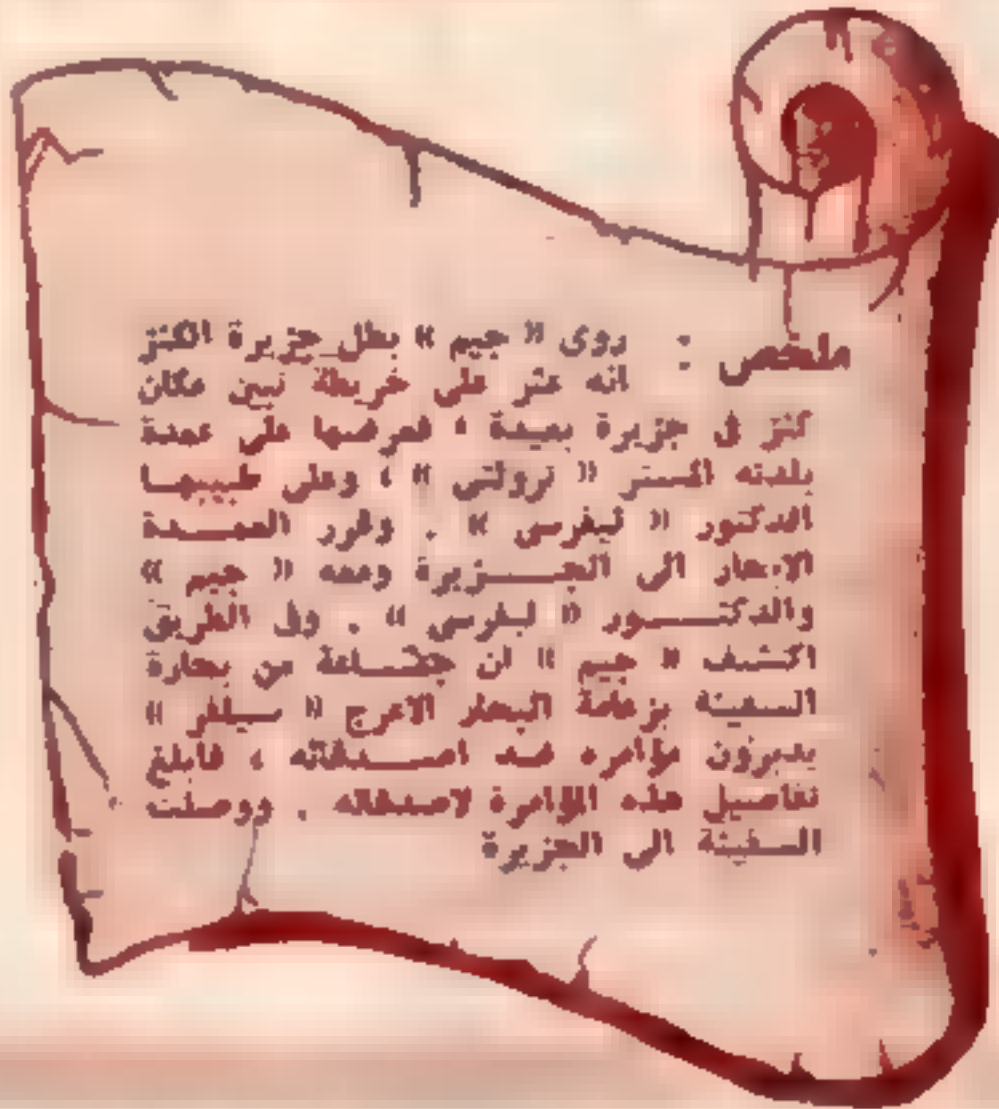 ملخص : روى « جيم » بطل جزيرة الكنز
انه عثر على خريطة تبين مكان
كنز فى جزيرة بعيدة ، فعرضها على عمدة
بلدته المستر « ترولنى » ، وعلى طبيبها
الدكتور « ليفرسى » . وقرر العمـــدة
الابحار الى الجـــزيرة ومعه « جيم »
والدكتـــور « ليفرسى » . وفى الطريق
اكتشف « جيم » ان جمـــاعة من بحارة
السفينة بزعامة البحار الاعرج « سيلفر »
يدبرون مؤامره ضد اصـــدقائه ، فابلغ
تفاصيل هذه المؤامرة لاصدقائه . ووصلت
السفينة الى الجزيرة